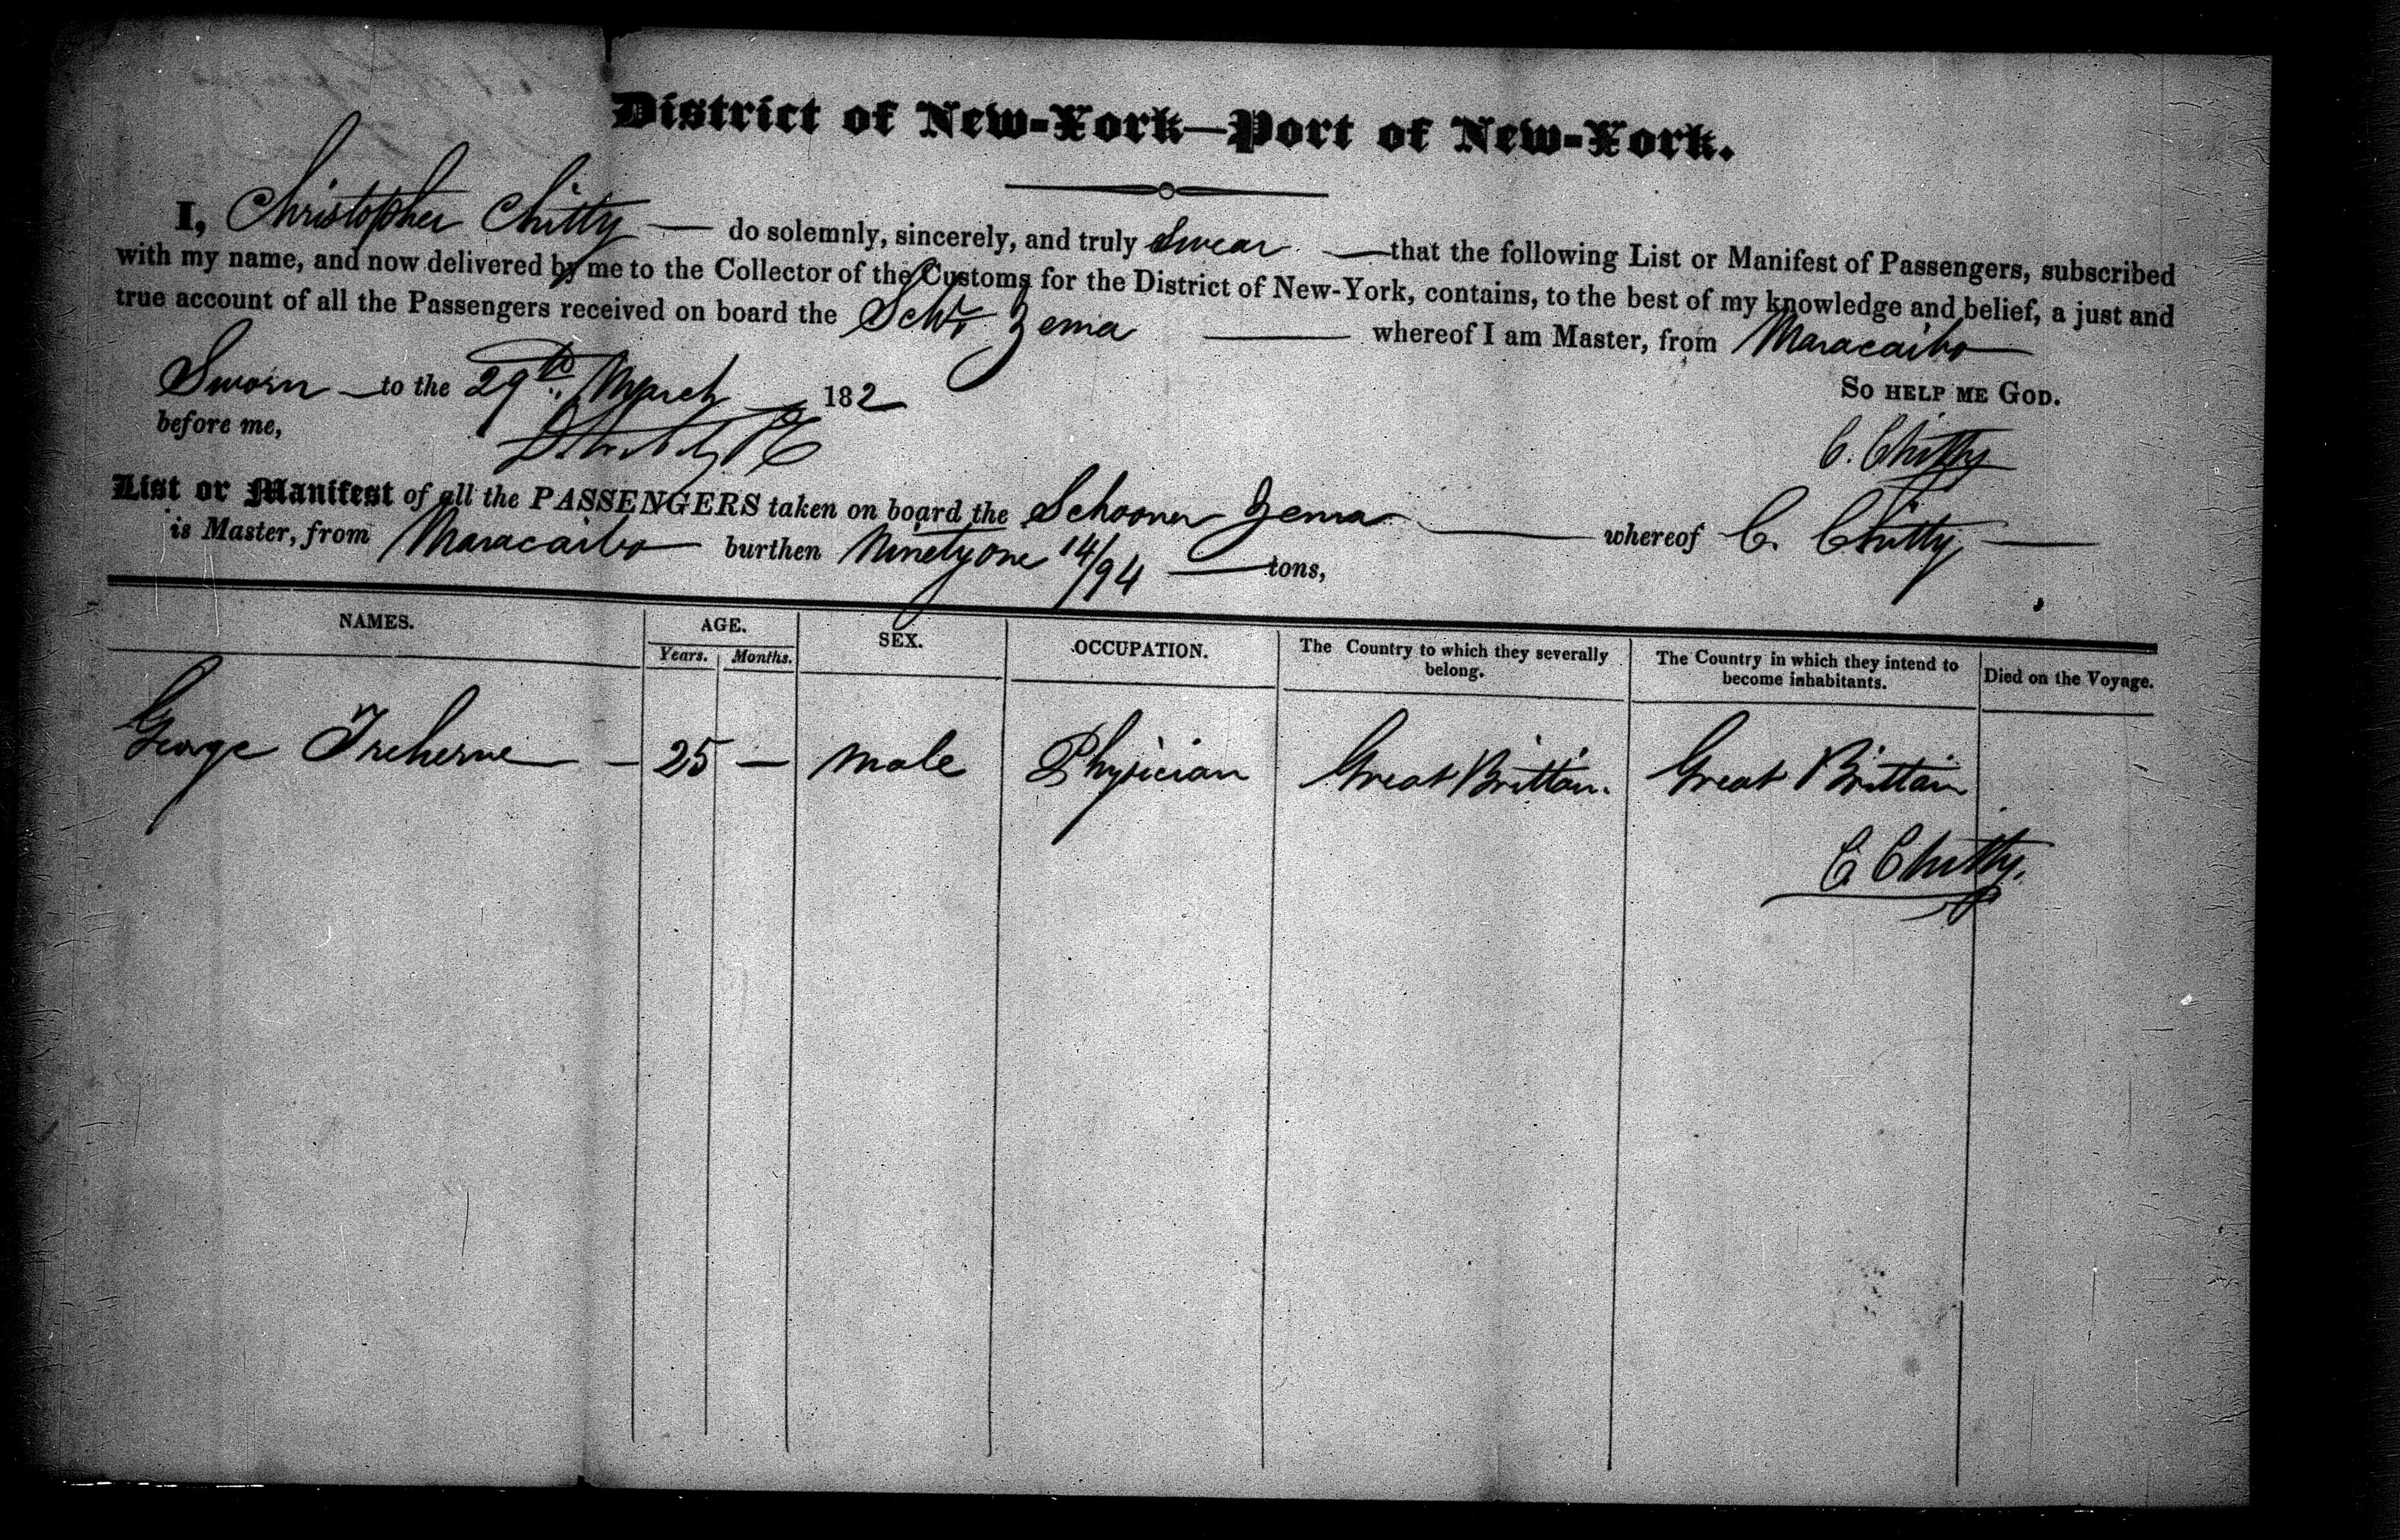 District of New-York—Port of New-York.
I, Christopher Chitty — do solemnly, sincerely, and truly Swear — that the following List or Manifest of Passengers, subscribed
with my name, and now delivered by me to the Collector of the Customs for the District of New-York, contains, to the best of my knowledge and belief, a just and
true account of all the Passengers received on board the Schr. Zema — whereof I am Master, from Maracaibo
Sworn — to the 29th March 182
So HELP ME GOD.
before me,
C. Chitty
List or Manifest of all the PASSENGERS taken on board the Schooner Zema — whereof C. Chitty —
is Master, from Maracaibo burthen Ninety one 14/94 — tons,
NAMES. AGE. SEX. OCCUPATION. The Country to which they severally belong. The Country in which they intend to become inhabitants. Died on the Voyage.
Years. Months.
George Treherne — 25 — male Physician Great Brittain. Great Brittain
C Chitty.